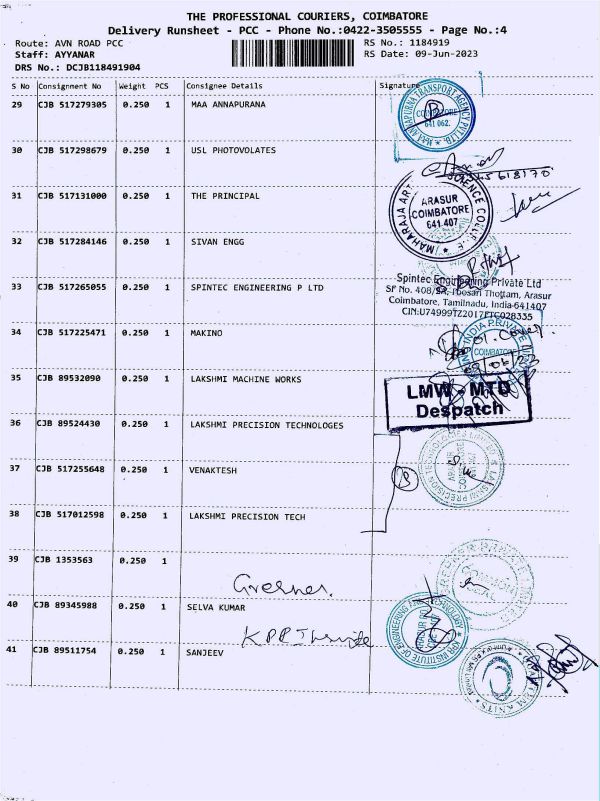 THE PROFESSIONAL COURIERS, COIMBATORE
Delivery Runsheet - PCC - Phone No.:0422-3505555 - Page No.:4
Route: AVN ROAD PCC RS No.: 1184919
Staff: AYYANAR RS Date: 09-Jun-2023
DRS No.: DCJB118491904
S No Consignment No Weight PCS Consignee Details Signature
29 CJB 517279305 0.250 1 MAA ANNAPURANA
COIMBATORE
641 062.
30 CJB 517298679 0.250 1 USL PHOTOVOLATES
31 CJB 517131000 0.250 1 THE PRINCIPAL
ARASUR
COIMBATORE
641 407
32 CJB 517284146 0.250 1 SIVAN ENGG
33 CJB 517265055 0.250 1 SPINTEC ENGINEERING P LTD
Spintec Engineering Private Ltd
Coimbatore, Tamilnadu, India-641407
34 CJB 517225471 0.250 1 MAKINO
COIMBATORE
35 CJB 89532090 0.250 1 LAKSHMI MACHINE WORKS
LMW - MTD
Despatch
36 CJB 89524430 0.250 1 LAKSHMI PRECISION TECHNOLOGES
37 CJB 517255648 0.250 1 VENAKTESH
38 CJB 517012598 0.250 1 LAKSHMI PRECISION TECH
39 CJB 1353563 0.250 1
40 CJB 89345988 0.250 1 SELVA KUMAR
41 CJB 89511754 0.250 1 SANJEEV